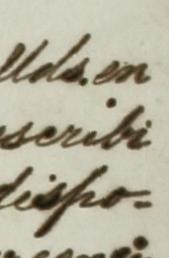 Uds. en
scribi
dispo-